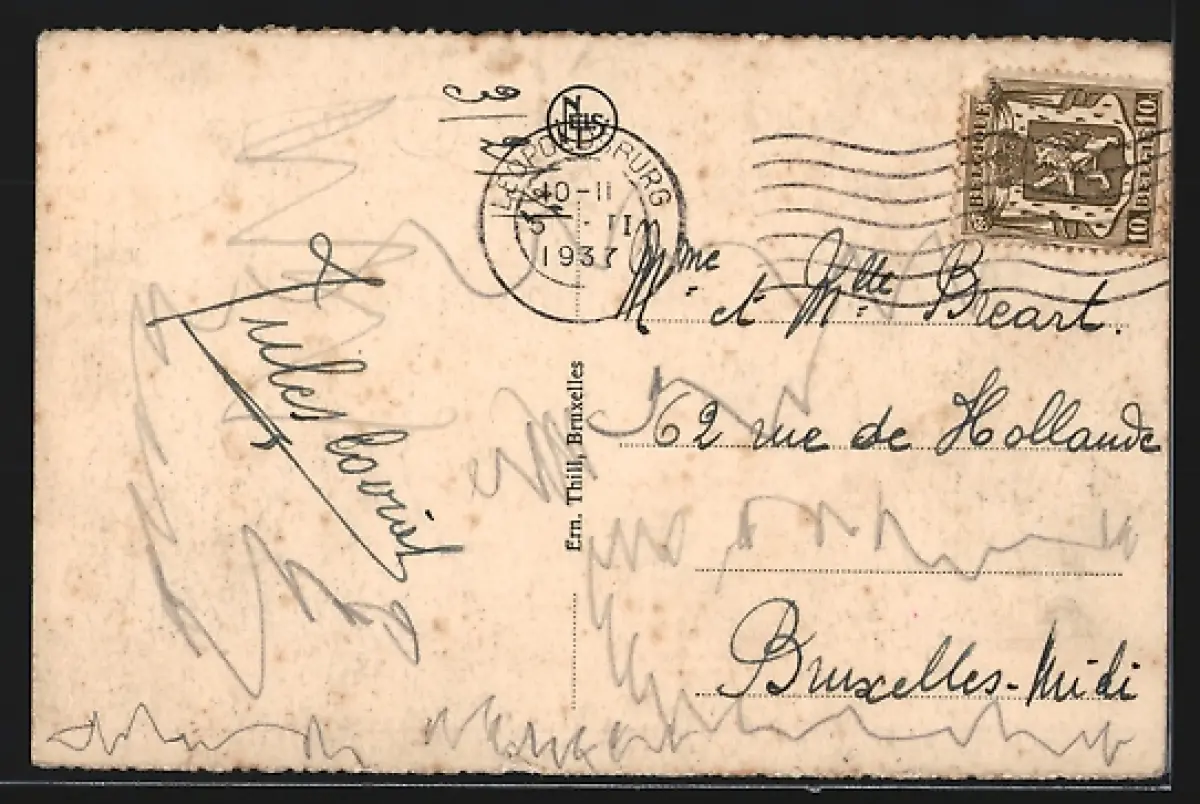 NELS
LEOPOLDSBURG
10-11
1937
BELGIQUE 10
10 BELGIE
Mr me et Mlle Breart.
62 rue de Hollande
Bruxelles-Midi
Jules
Ern. Thill, Bruxelles